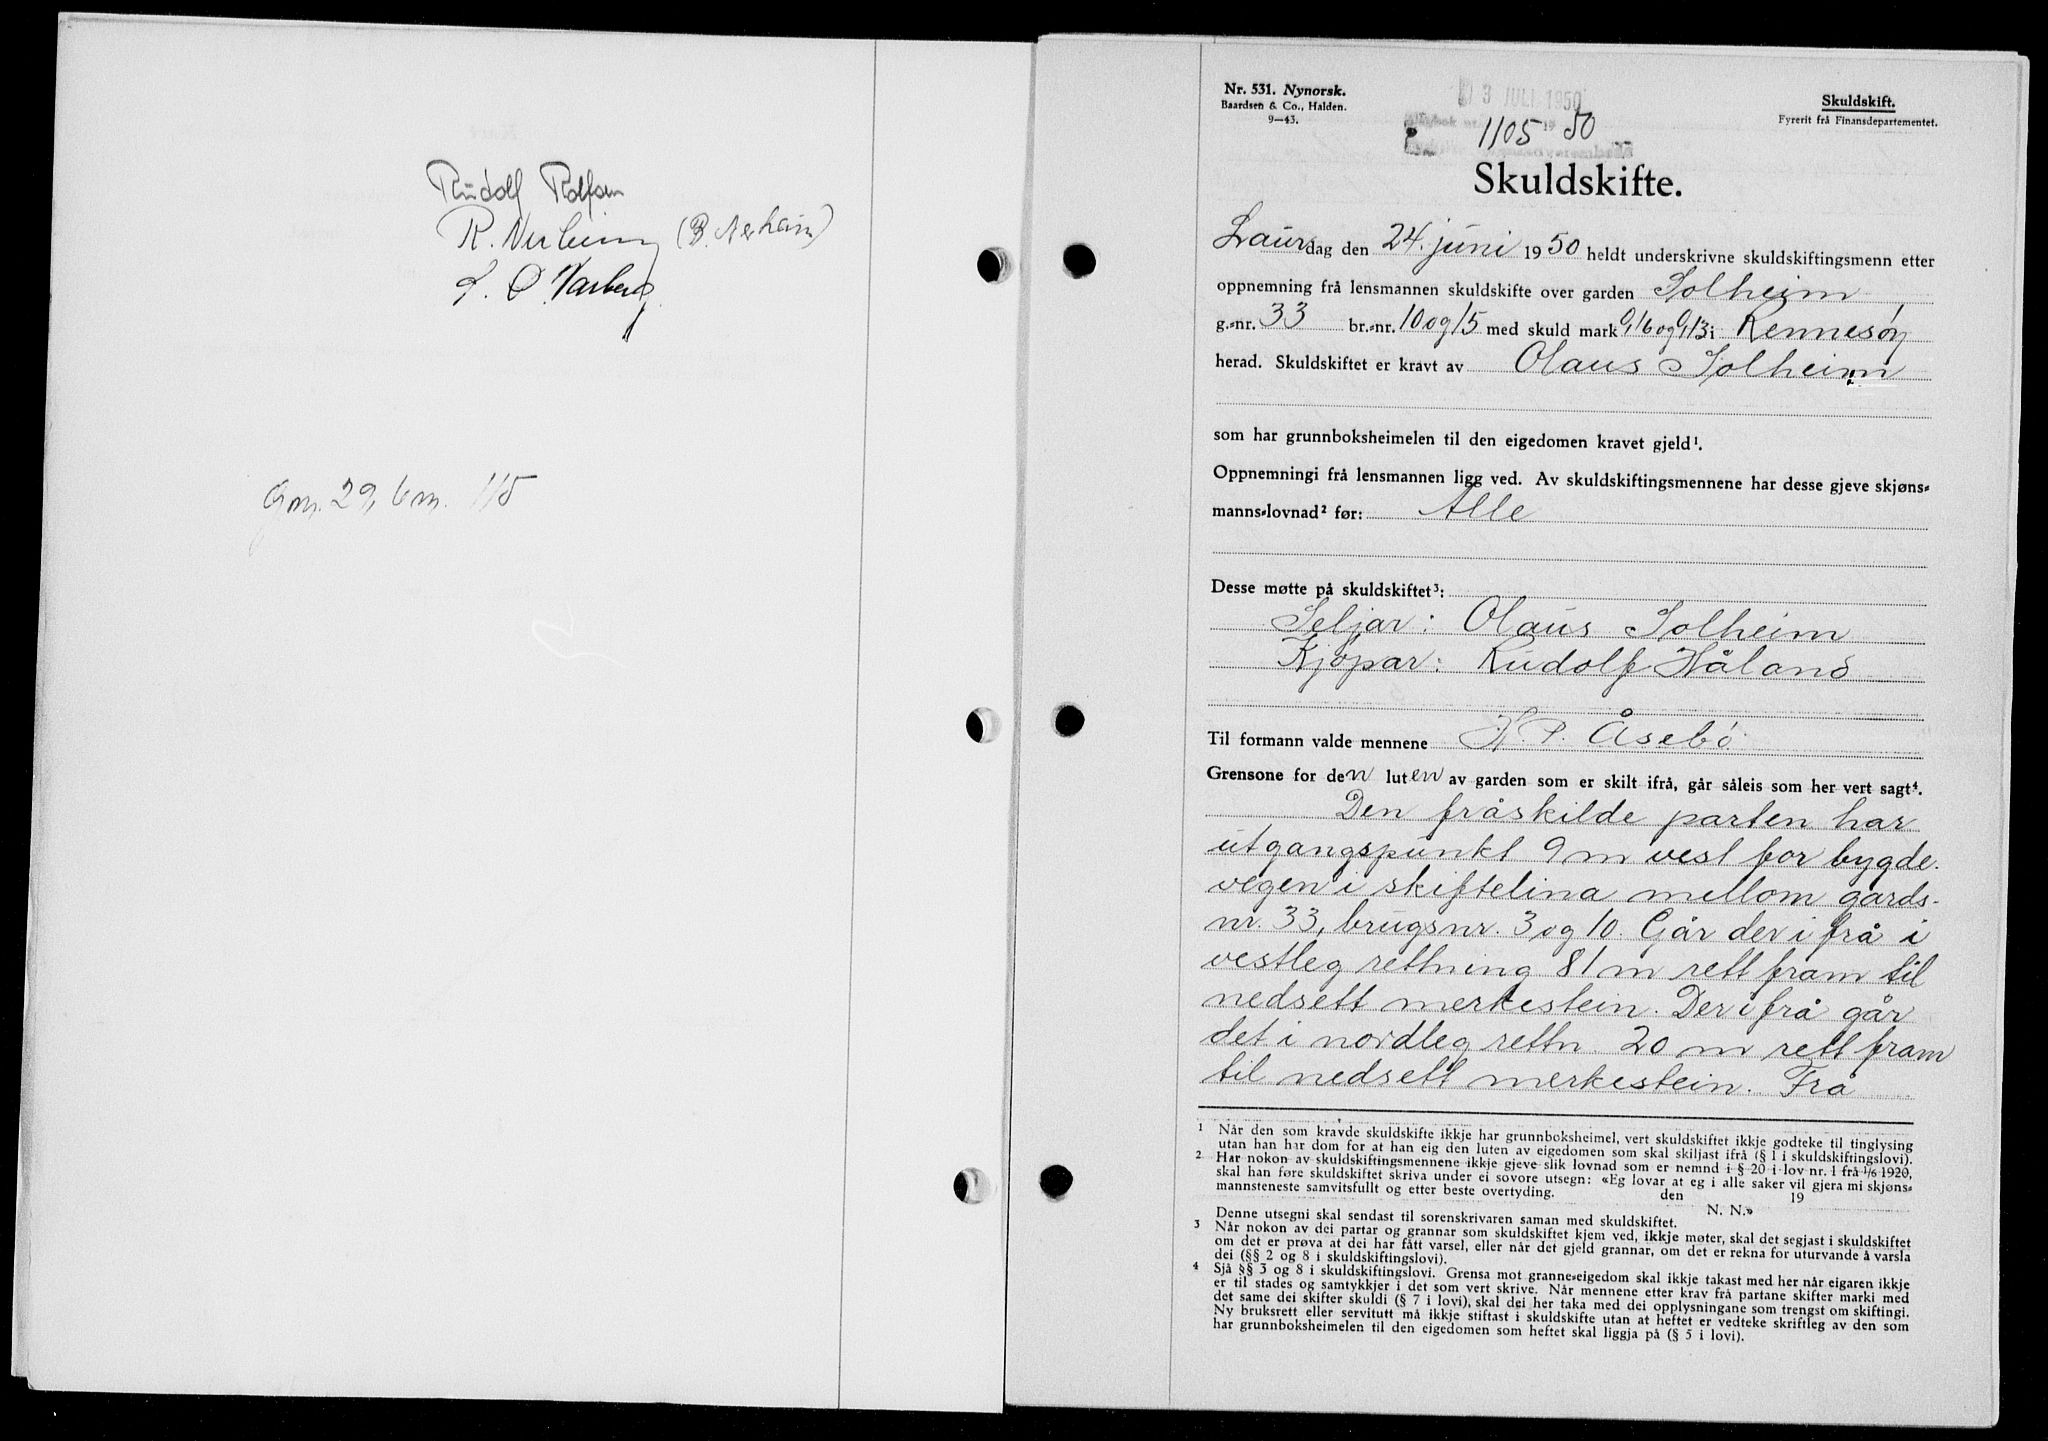 Rudolf Rolfsen
R. Nerheim (B. Nerheim)
S. O. Varberg
Gnr. 29, bnr. 115
Nr. 531. Nynorsk.
Baardsen & Co., Halden.
9—43.
3 JULI 1950
1105 19 50
Skuldskift.
Fyrerit frå Finansdepartementet.
Skuldskifte.
Laurdag den 24. juni 1950 heldt underskrivne skuldskiftingsmenn etter
oppnemning frå lensmannen skuldskifte over garden Solheim
g.-nr. 33 br.-nr. 10 og 15 med skuld mark 0,16 og 0,13 i Rennesøy
herad. Skuldskiftet er kravt av Olaus Solheim
som har grunnboksheimelen til den eigedomen kravet gjeld¹.
Oppnemningi frå lensmannen ligg ved. Av skuldskiftingsmennene har desse gjeve skjøns-
manns-lovnad² før: Alle
Desse møtte på skuldskiftet³:
Seljar: Olaus Solheim
Kjøpar: Rudolf Håland
Til formann valde mennene K. P. Åsebø
Grensone for den luten av garden som er skilt ifrå, går såleis som her vert sagt⁴.
Den fråskilde parten har
utgangspunkt 9 m vest for bygde-
vegen i skiftelina mellom gards-
nr. 33, brugsnr. 3 og 10. Går der i frå i
vestleg rettning 81 m rett fram til
nedsett merkestein. Der i frå går
det i nordleg rettn 20 m rett fram
til nedsett merkestein. Frå
1 Når den som kravde skuldskifte ikkje har grunnboksheimel, vert skuldskiftet ikkje godteke til tinglysing
utan han har dom for at han eig den luten av eigedomen som skal skiljast ifrå (§ 1 i skuldskiftingslovi).
2 Har nokon av skuldskiftingsmennene ikkje gjeve slik lovnad som er nemnd i § 20 i lov nr. 1 frå 1/6 1920,
skal han føre skuldskiftet skriva under ei sovore utsegn: «Eg lovar at eg i alle saker vil gjera mi skjøns-
mannsteneste samvitsfullt og etter beste overtyding. den 19
N. N.»
Denne utsegni skal sendast til sorenskrivaren saman med skuldskiftet.
3 Når nokon av dei partar og grannar som skuldskiftet kjem ved, ikkje møter, skal det segjast i skuldskiftet
om det er prøva at dei har fått varsel, eller når det gjeld grannar, om det er rekna for uturvande å varsla
dei (§§ 2 og 8 i skuldskiftingslovi).
4 Sjå §§ 3 og 8 i skuldskiftingslovi. Grensa mot granne-eigedom skal ikkje takast med her når eigaren ikkje
er til stades og samtykkjer i det som vert skrive. Når mennene etter krav frå partane skifter marki med
det same dei skifter skuldi (§ 7 i lovi), skal dei her taka med dei opplysningane som trengst om skiftingi.
Ny bruksrett eller servitutt må ikkje stiftast i skuldskifte utan at heftet er vedteke skriftleg av den som
har grunnboksheimelen til den eigedomen som heftet skal liggja på (§ 5 i lovi).